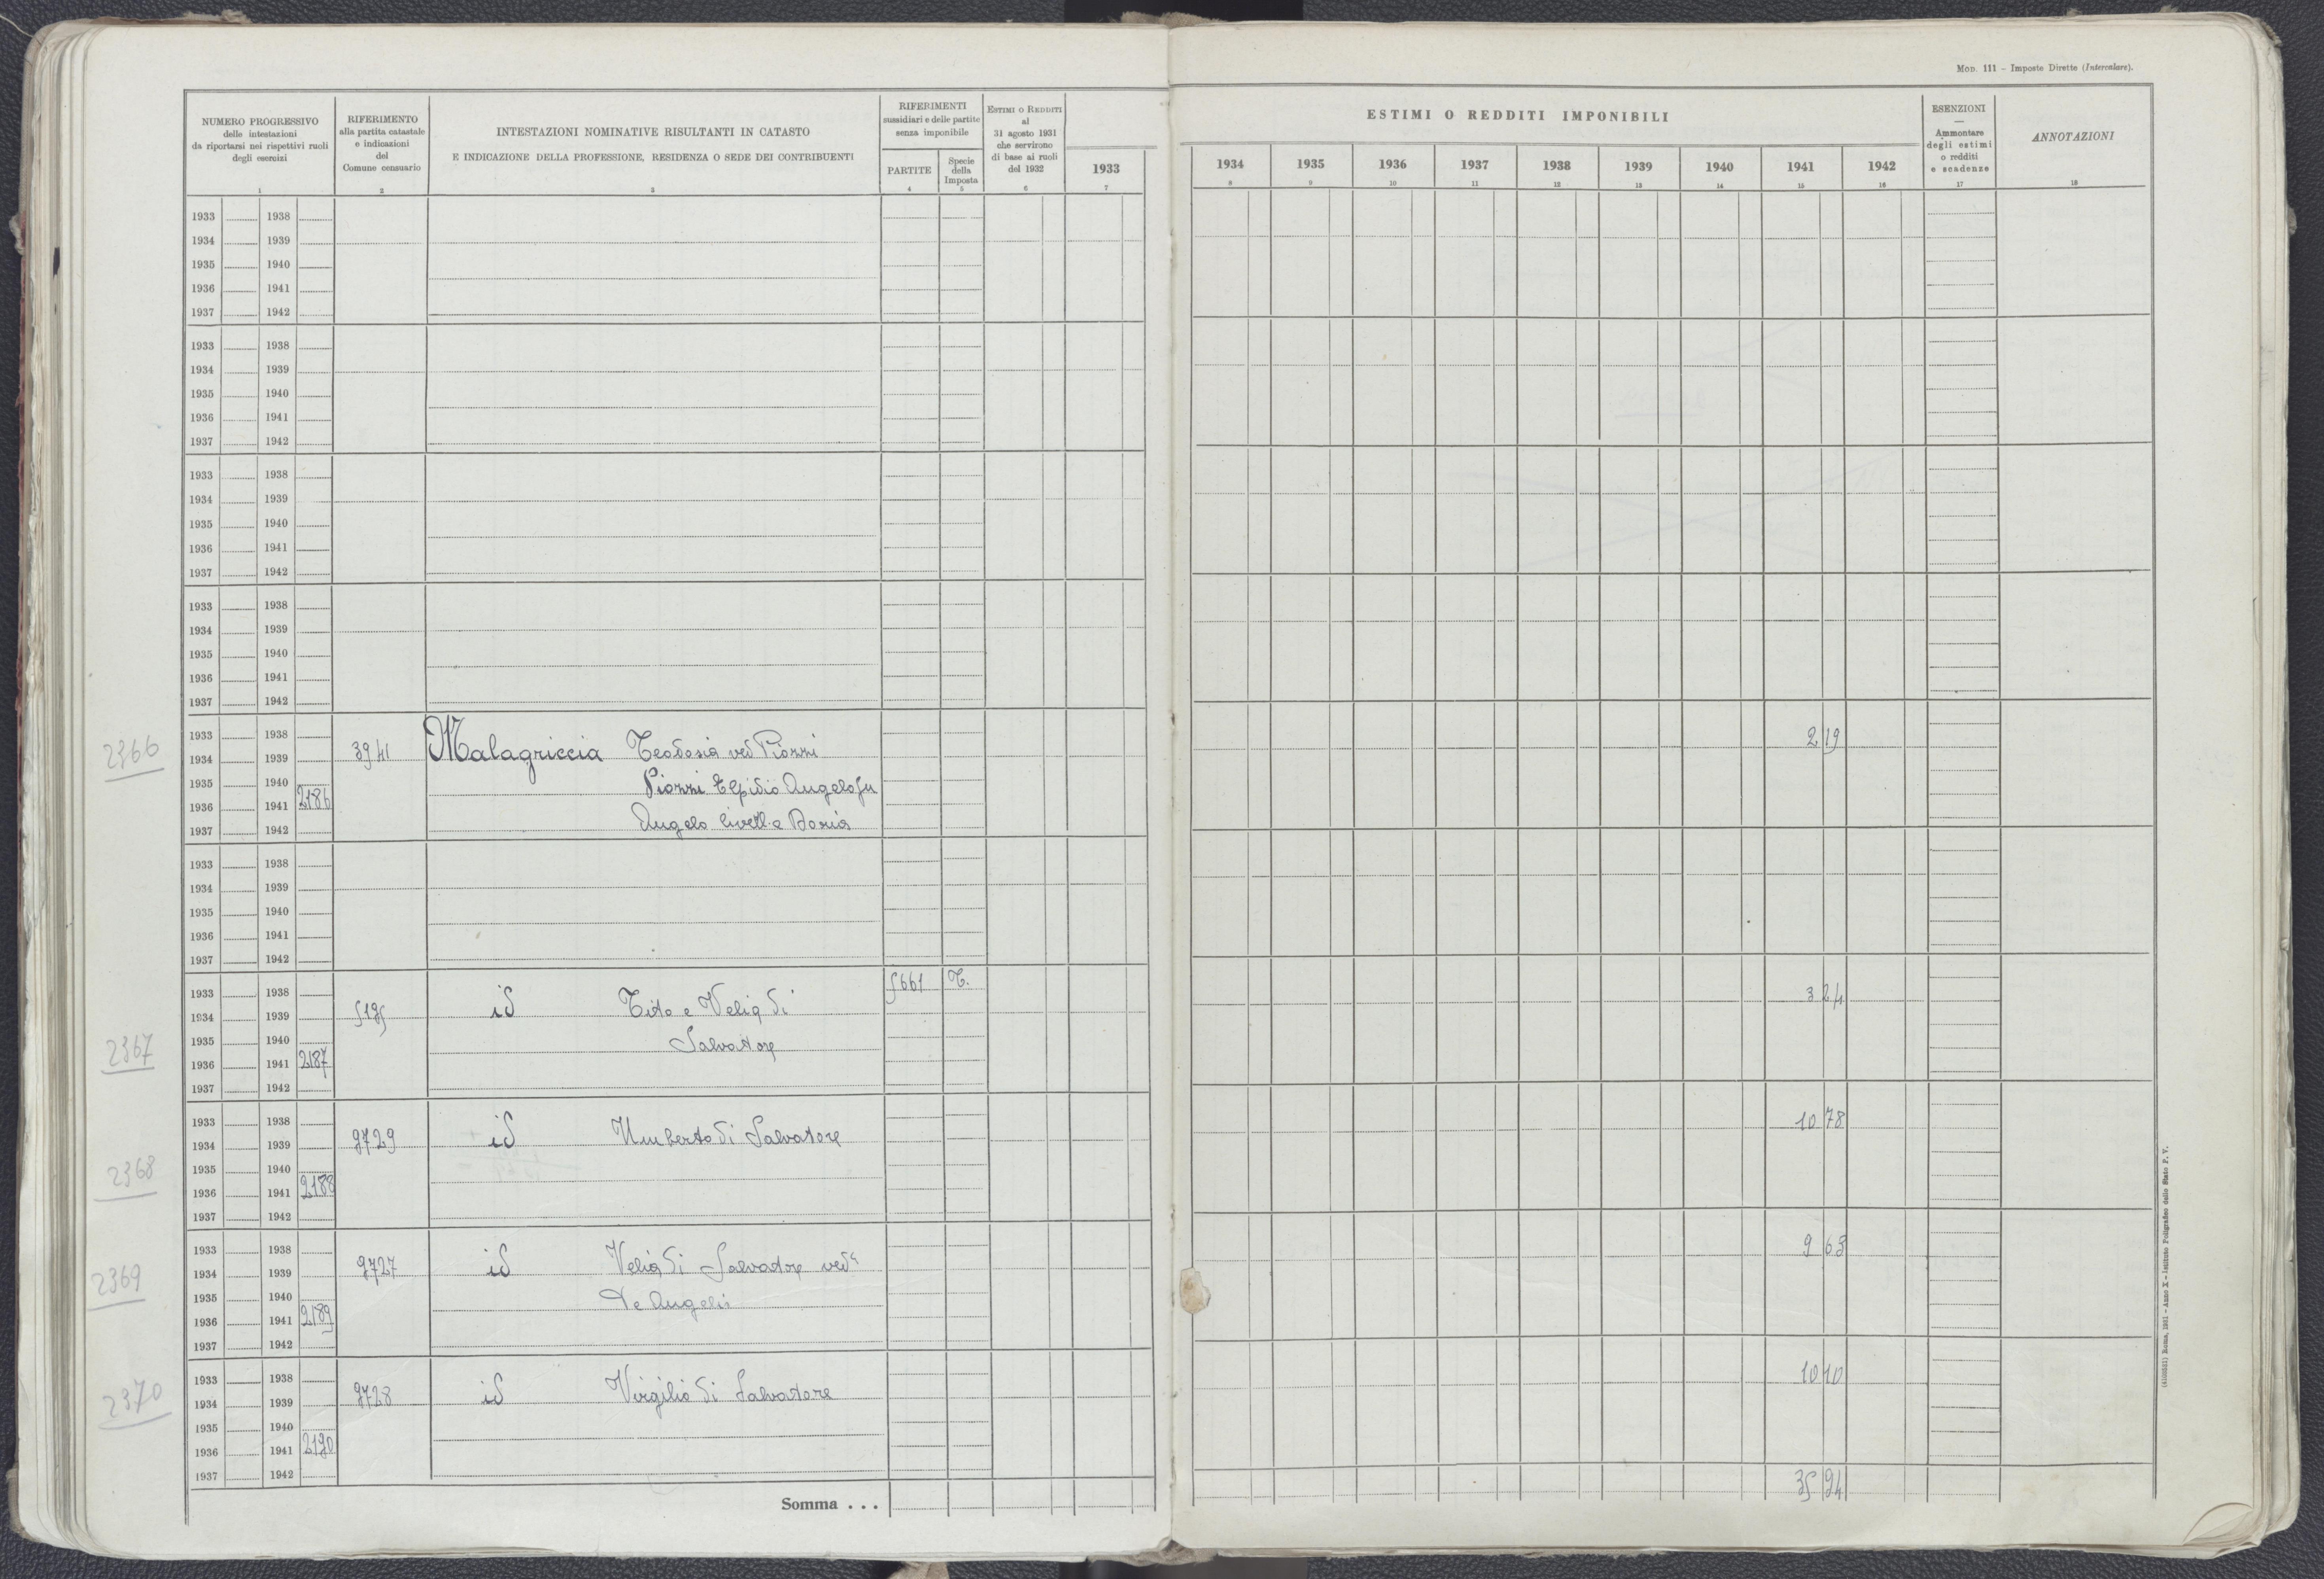 Mod. 111 - Imposte Dirette (Intercalare).
NUMERO PROGRESSIVO
delle intestazioni
da riportarsi nei rispettivi ruoli
degli esercizi
1
RIFERIMENTO
alla partita catastale
e indicazioni
del
Comune censuario
2
INTESTAZIONI NOMINATIVE RISULTANTI IN CATASTO
E INDICAZIONE DELLA PROFESSIONE, RESIDENZA O SEDE DEI CONTRIBUENTI
3
RIFERIMENTI
sussidiari e delle partite
senza imponibile
PARTITE
4
Specie
della
Imposta
5
Estimi o Redditi
al
31 agosto 1931
che servirono
di base ai ruoli
del 1932
6
ESTIMI O REDDITI IMPONIBILI
1933 1934 1935 1936 1937 1938 1939 1940 1941 1942
7 8 9 10 11 12 13 14 15 16
ESENZIONI
—
Ammontare
degli estimi
o redditi
e scadenze
17
ANNOTAZIONI
18
1933 1938
1934 1939
1935 1940
1936 1941
1937 1942
1933 1938
1934 1939
1935 1940
1936 1941
1937 1942
1933 1938
1934 1939
1935 1940
1936 1941
1937 1942
1933 1938
1934 1939
1935 1940
1936 1941
1937 1942
1933 1938 2 19
2366 1934 1939 3941 Malagriccia Teodosia ved Piozzi
1935 1940 Piozzi Elpidio Angelo fu
1936 1941 2186
1937 1942 Angelo livell. a Doria
1933 1938
1934 1939
1935 1940
1936 1941
1937 1942
1933 1938 5661 T. 3 24
1934 1939 5195 id Tito e Velia di
1935 1940 Salvatore
2367 1936 1941 2187
1937 1942
1933 1938 10 78
1934 1939 9729 id Umberto di Salvatore
2368 1935 1940
1936 1941 2188
1937 1942
1933 1938 9 63
1934 1939 9727 id Velia di Salvatore ved.
2369 1935 1940 De Angelis
1936 1941 2189
1937 1942
1933 1938 10 10
2370 1934 1939 9728 id Virgilio di Salvatore
1935 1940
1936 1941 2190
1937 1942
Somma . . . 35 94
(4100531) Roma, 1931 - Anno X - Istituto Poligrafico dello Stato P. V.